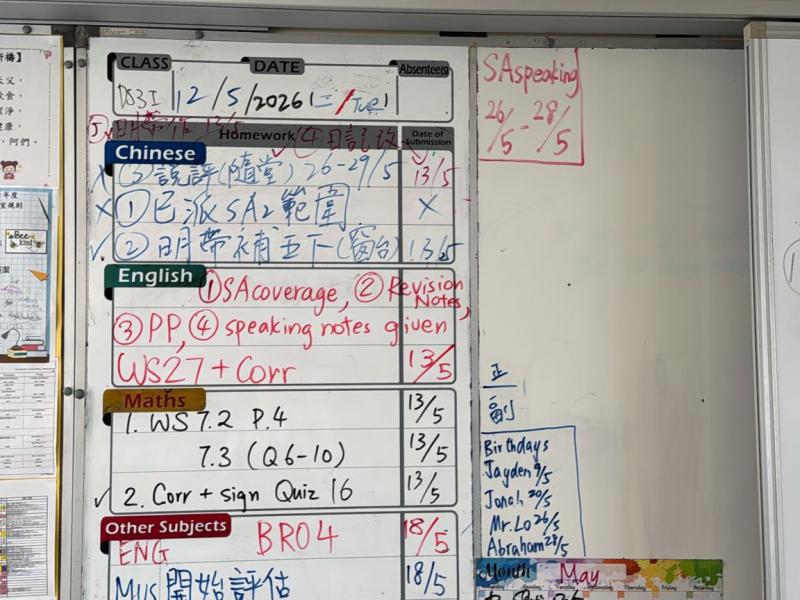 CLASS DATE Absentee(s)
DS3I 12/5/2026(二/Tue)
⑤ 明帶作 13/5
Homework ④日記改
Date of Submission
Chinese
(3) 說評(隨堂) 26-29/5 13/5
①已派SA2範圍 X
② 明帶補五下(窗台) 13/5
English
①SA coverage, ② Revision Notes,
③ PP, ④ speaking notes given
WS27 + Corr 13/5
Maths
1. WS 7.2 P.4 13/5
7.3 (Q6-10) 13/5
2. Corr + sign Quiz 16 13/5
Other Subjects
ENG BRO4 18/5
Mus 開始評估 18/5
SAspeaking
26/5 - 28/5
正
副
Birthdays
Jayden 9/5
Jonah 20/5
Mr. Lo 26/5
Abraham 28/5
Month May
Bee kind